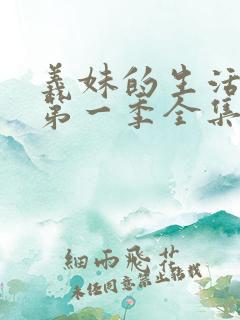 義妹的生活
第一季全集
細雨飛花
未经同意禁止转载